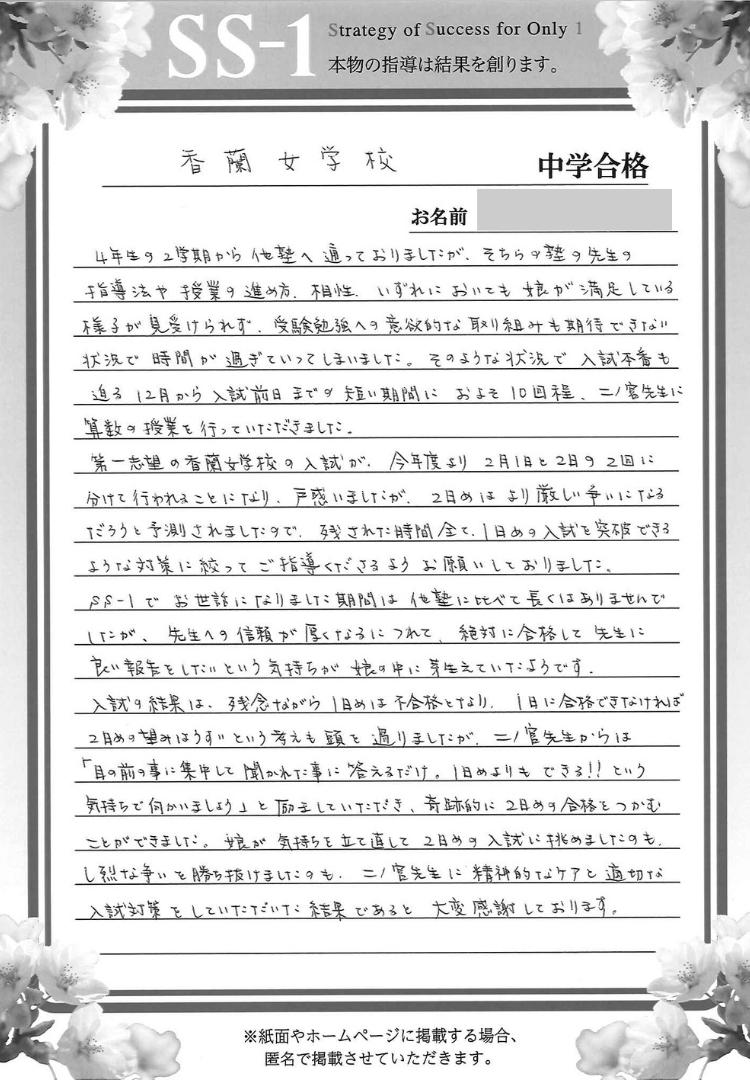 SS-1
Strategy of Success for Only 1
本物の指導は結果を創ります。
香蘭女学校 中学合格
お名前
4年生の2学期から他塾へ通っておりましたが、そちらの塾の先生の
指導法や授業の進め方、相性、いずれにおいても娘が満足している
様子が見受けられず、受験勉強への意欲的な取り組みも期待できない
状況で時間が過ぎていってしまいました。そのような状況で入試本番も
迫る12月から入試前日までの短い期間におよそ10回程、二ノ宮先生に
算数の授業を行っていただきました。
第一志望の香蘭女学校の入試が、今年度より2月1日と2日の2回に
分けて行われることになり、戸惑いましたが、2日めはより厳しい争いになる
だろうと予測されましたので、残された時間全て、1日めの入試を突破できる
ような対策に絞ってご指導くださるようお願いしておりました。
SS-1でお世話になりました期間は他塾に比べて長くはありませんで
したが、先生への信頼が厚くなるにつれて、絶対に合格して先生に
良い報告をしたいという気持ちが娘の中に芽生えていたようです。
入試の結果は、残念ながら1日めは不合格となり、1日に合格できなければ
2日めの望みはうすいという考えも頭を過りましたが、二ノ宮先生からは
「目の前の事に集中して聞かれた事に答えるだけ。1日めよりもできる!!という
気持ちで向かいましょう」と励ましていただき、奇跡的に2日めの合格をつかむ
ことができました。娘が気持ちを立て直して2日めの入試に挑めましたのも、
し烈な争いを勝ち抜けましたのも、二ノ宮先生に精神的なケアと適切な
入試対策をしていただいた結果であると大変感謝しております。
※紙面やホームページに掲載する場合、
匿名で掲載させていただきます。